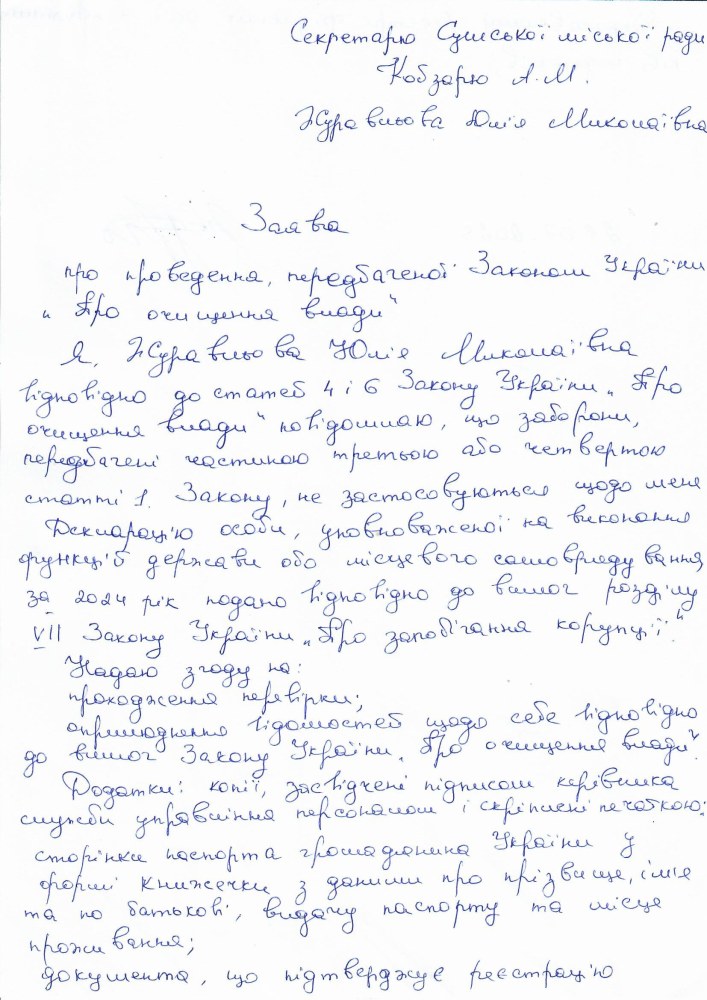 Секретарю Сумської міської ради
Кобзарю А.М.
Журавльова Юлія Миколаївна
Заява
про проведення, передбаченої Законом України
„Про очищення влади"
Я, Журавльова Юлія Миколаївна
відповідно до статей 4 і 6 Закону України „Про
очищення влади" повідомляю, що заборони,
передбачені частиною третьою або четвертою
статті 1 Закону, не застосовуються щодо мене
Декларацію особи, уповноваженої на виконання
функцій держави або місцевого самоврядування
за 2024 рік подано відповідно до вимог розділу
VII Закону України „Про запобігання корупції".
Надаю згоду на:
проходження перевірки;
оприлюднення відомостей щодо себе відповідно
до вимог Закону України „Про очищення влади".
Додатки: копії, засвідчені підписом керівника
служби управління персоналом і скріплені печаткою:
сторінки паспорта громадянина України у
формі книжечки з даними про прізвище, ім'я
та по батькові, видачу паспорту та місце
проживання;
документа, що підтверджує реєстрацію